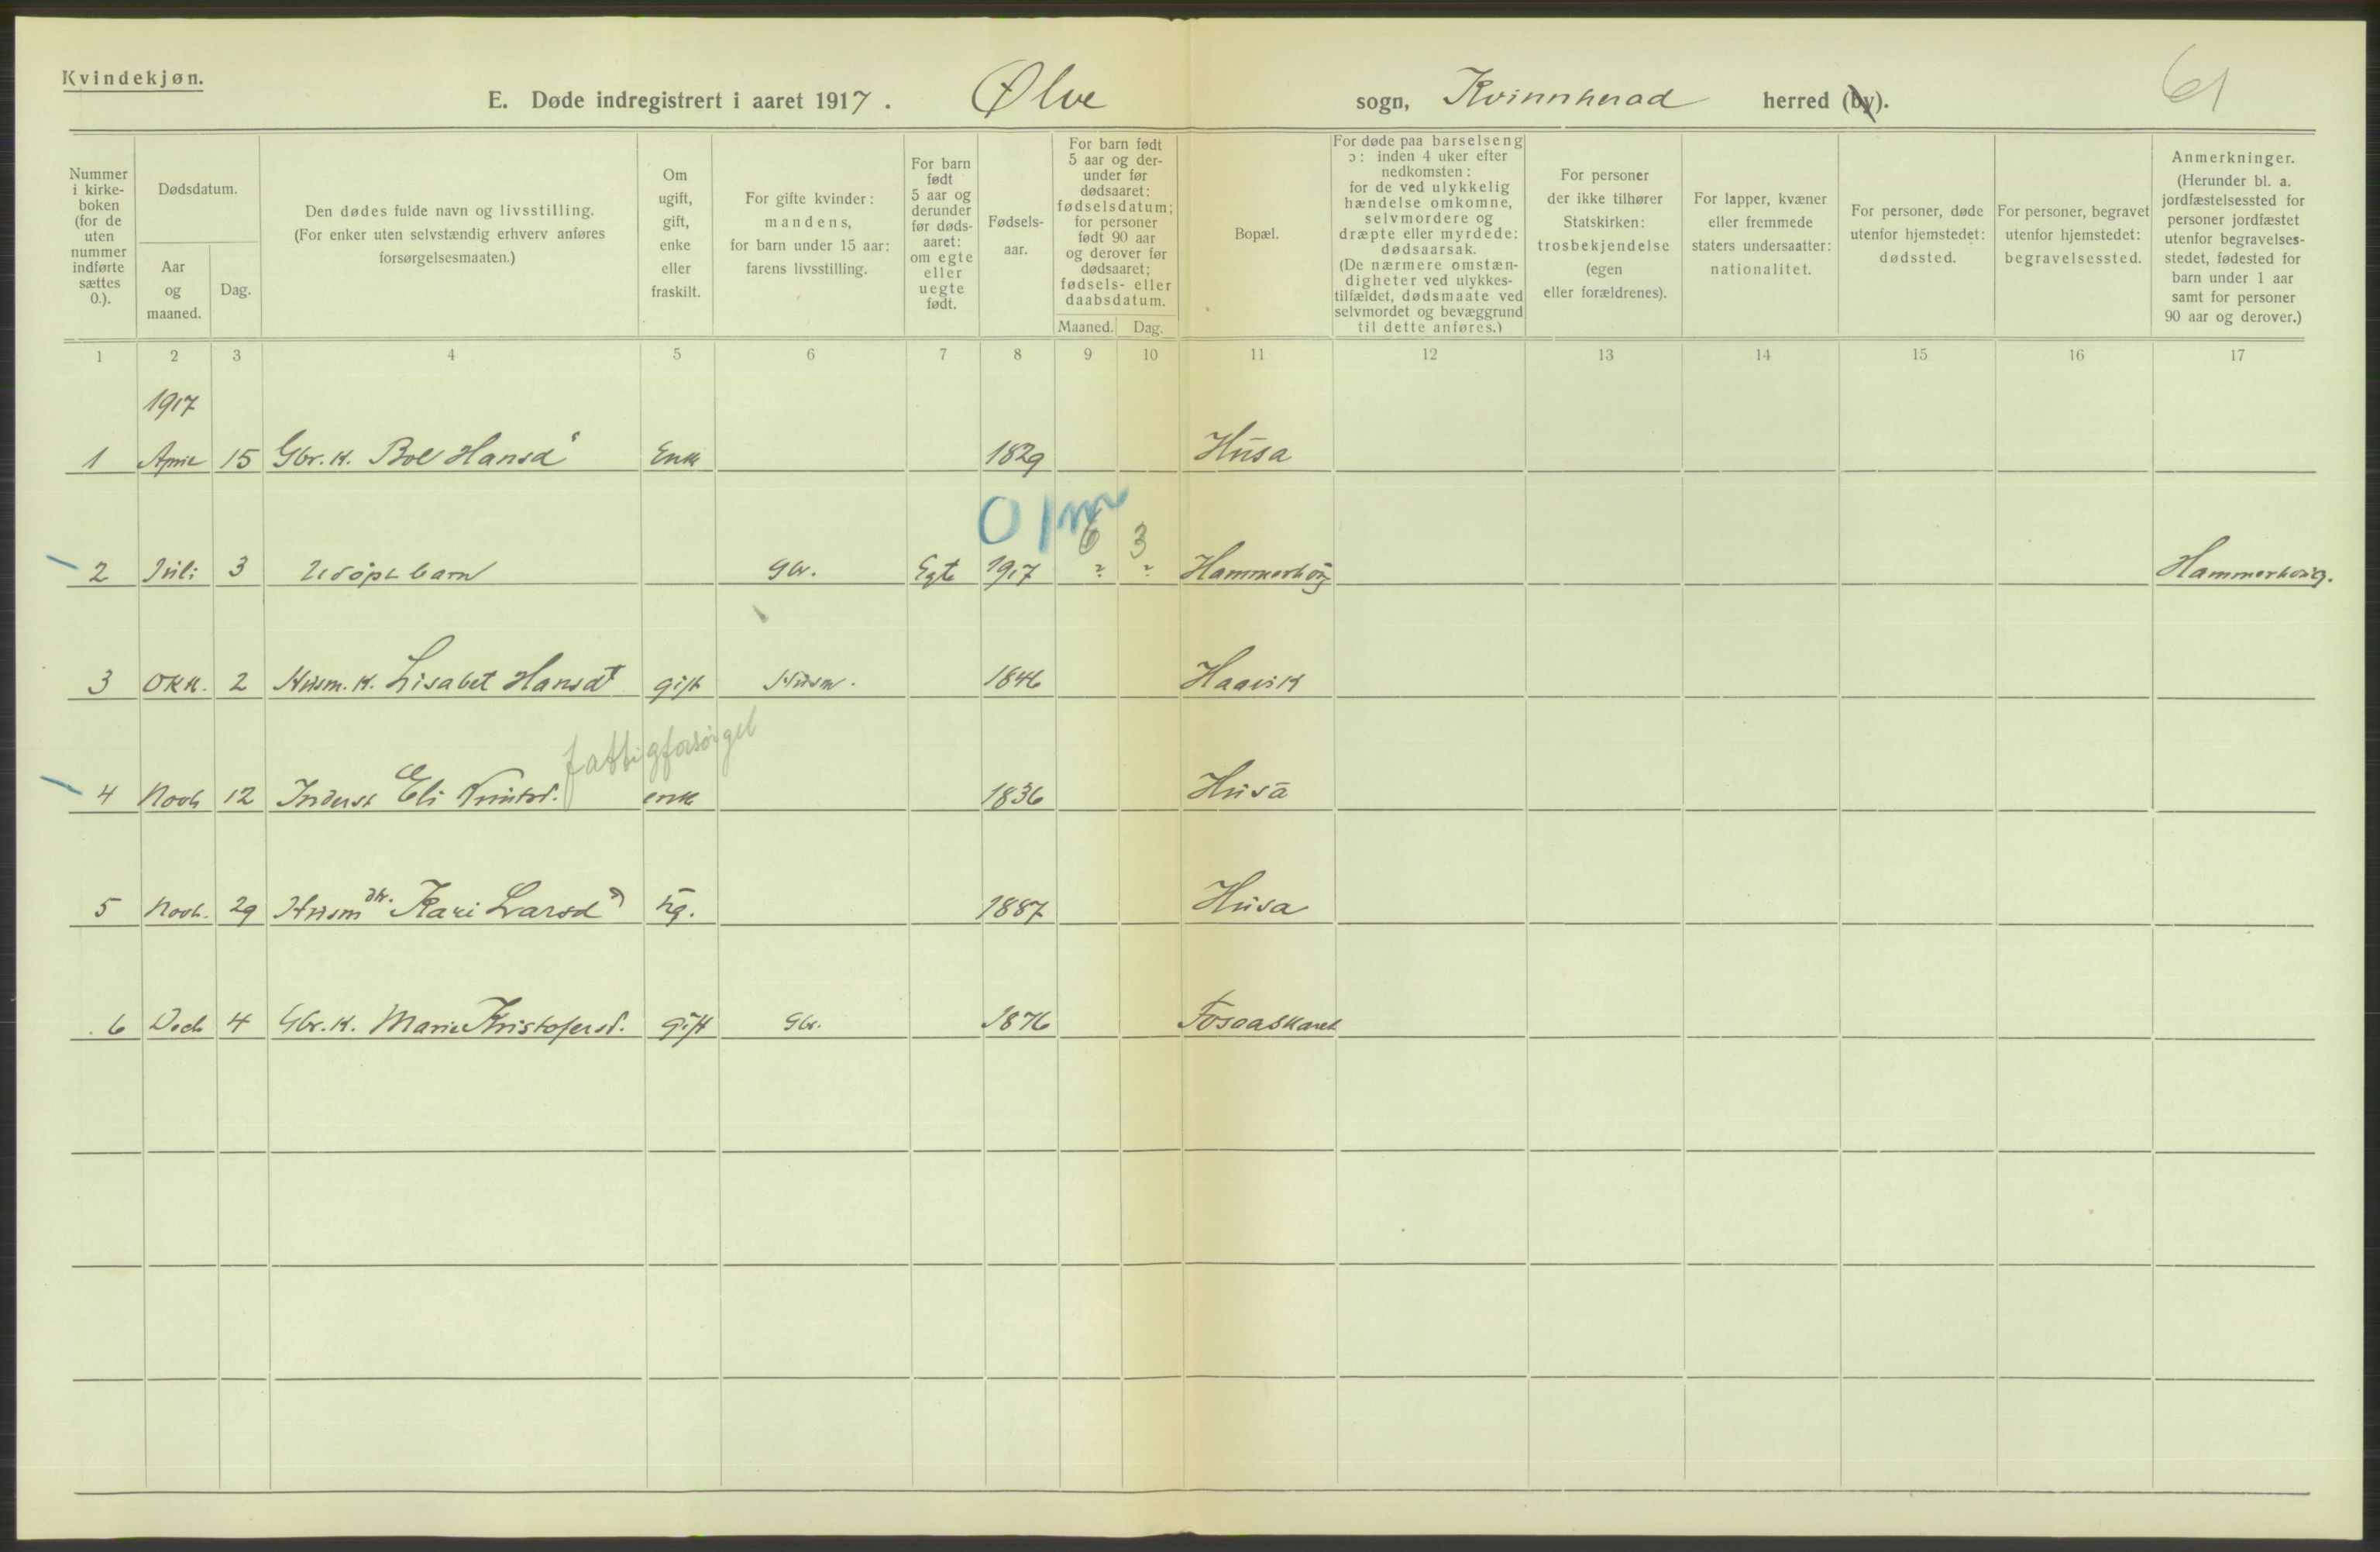 Kvindekjøn.
E. Døde indregistrert i aaret 1917. Ølve sogn, Kvinnherad herred (by).
61
Nummer i kirke-boken (for de uten nummer indførte sættes 0.).
Dødsdatum.
Aar og maaned.
Dag.
Den dødes fulde navn og livsstilling. (For enker uten selvstændig erhverv anføres forsørgelsesmaaten.)
Om ugift, gift, enke eller fraskilt.
For gifte kvinder: mandens, for barn under 15 aar: farens livsstilling.
For barn født 5 aar og derunder før døds-aaret: om egte eller uegte født.
Fødsels-aar.
For barn født 5 aar og der-under før dødsaaret: fødselsdatum; for personer født 90 aar og derover før dødsaaret; fødsels- eller daabsdatum.
Maaned. Dag.
Bopæl.
For døde paa barselseng ɔ: inden 4 uker efter nedkomsten: for de ved ulykkelig hændelse omkomne, selvmordere og dræpte eller myrdede: dødsaarsak. (De nærmere omstæn-digheter ved ulykkes-tilfældet, dødsmaate ved selvmordet og bevæggrund til dette anføres.)
For personer der ikke tilhører Statskirken: trosbekjendelse (egen eller forældrenes).
For lapper, kvæner eller fremmede staters undersaatter: nationalitet.
For personer, døde utenfor hjemstedet: dødssted.
For personer, begravet utenfor hjemstedet: begravelsessted.
Anmerkninger. (Herunder bl. a. jordfæstelsessted for personer jordfæstet utenfor begravelses-stedet, fødested for barn under 1 aar samt for personer 90 aar og derover.)
1 2 3 4 5 6 7 8 9 10 11 12 13 14 15 16 17
1917
1 April 15 Gbr. k. Hansd Enke 1829 Husa
0 1 m 6 3
2 Juli 3 Udøpt barn Gbr. Egte 1917 ? ? Hammerhøug Hammerhoug.
3 Okt. 2 Husm. k. Lisabet Hansdt gift Husm. 1846 Haavik
fattigforsørget
4 Novb 12 Inderst Eli Knutsd. enke 1836 Husa
5 Novb. 29 Husm dtr. Kari Larsd ug. 1887 Husa
6 Decb 4 Gbr. k. Marie Kristofersd. gift Gbr. 1876